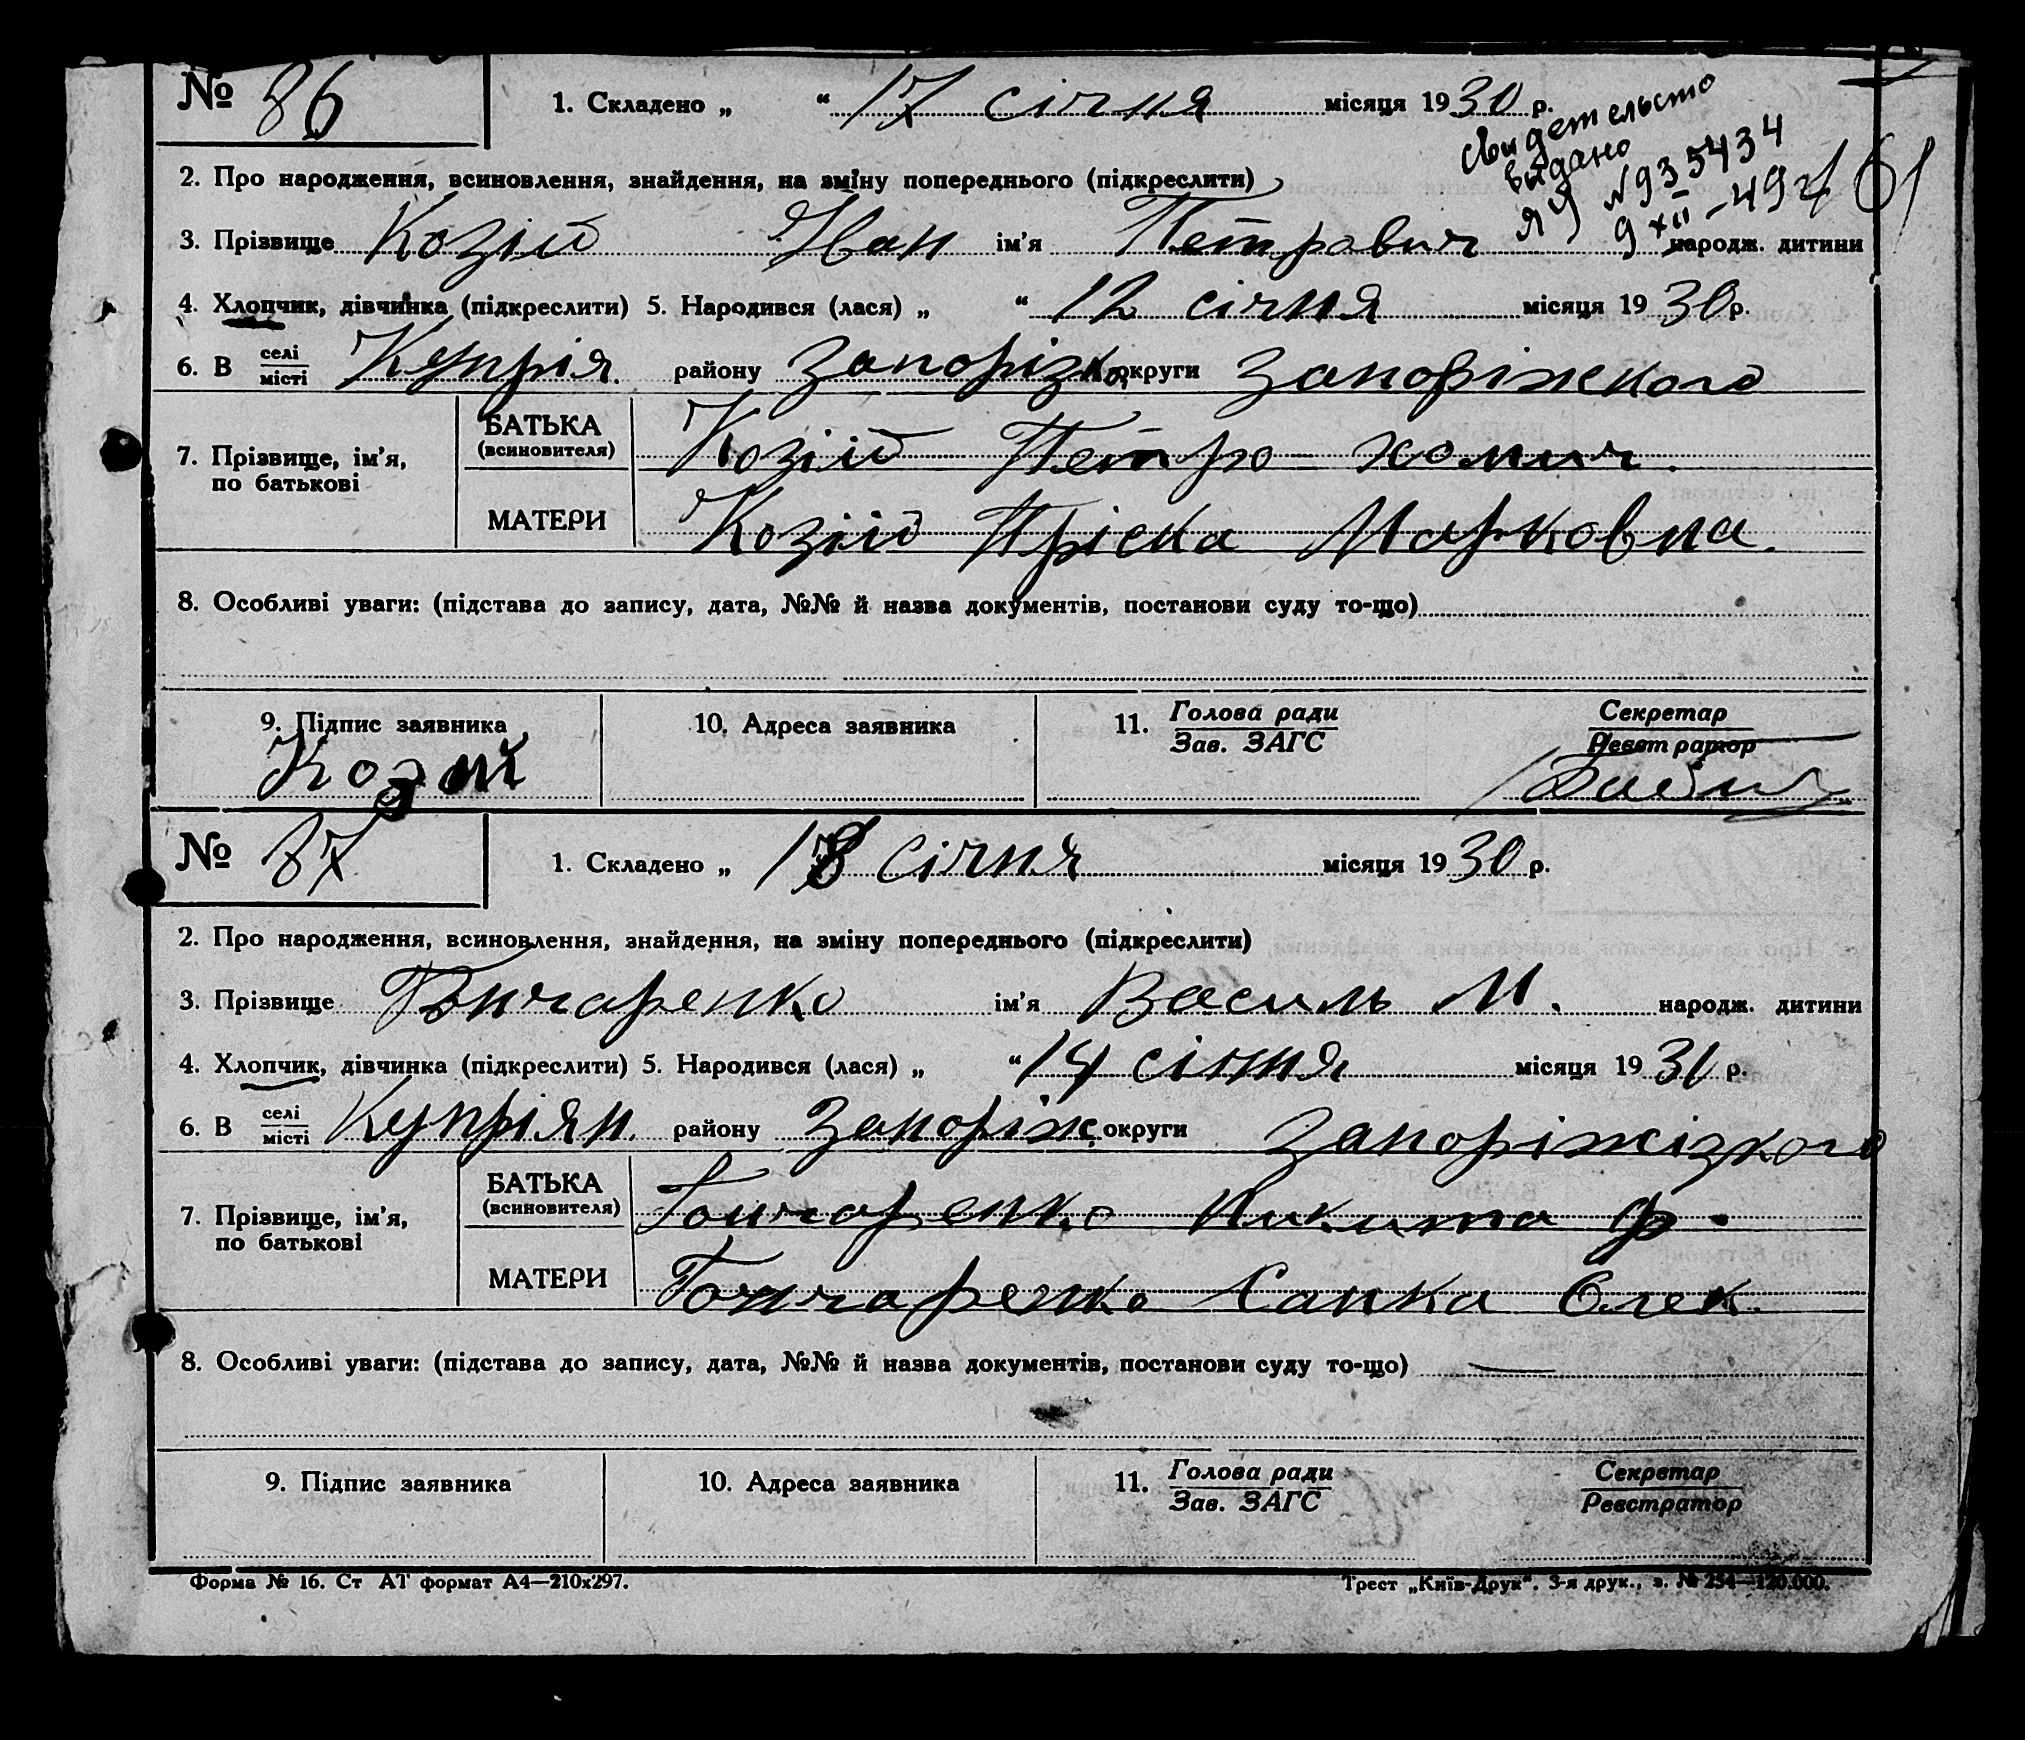 № 86 1. Складено „ “ 17 січня місяця 1930 р.
свидетельсто
выдано
ЯЧ №935434
9 XII-49 г 61
2. Про народження, всиновлення, знайдення, на зміну попереднього (підкреслити)
3. Прізвище Козій Іван ім’я Петрович народж. дитини
4. Хлопчик, дівчинка (підкреслити) 5. Народився (лася) „ “ 12 січня місяця 1930 р.
6. В селі/місті Купрія. району Запорізко округи Запоріжкого
7. Прізвище, ім’я, по батькові БАТЬКА (всиновителя) Козій Петро хомич.
МАТЕРИ Козій Пріска Марковна.
8. Особливі уваги: (підстава до запису, дата, №№ й назва документів, постанови суду то-що)
9. Підпис заявника 10. Адреса заявника 11. Голова ради/Зав. ЗАГС Секретар/Реєстратор
Козій
№ 87 1. Складено „ 18 січня місяця 1930 р.
2. Про народження, всиновлення, знайдення, на зміну попереднього (підкреслити)
3. Прізвище Гончаренко ім’я Василь М. народж. дитини
4. Хлопчик, дівчинка (підкреслити) 5. Народився (лася) „ “ 14 січня місяця 1931 р.
6. В селі/місті Купріян. району Запоріж. округи Запоріжізкого
7. Прізвище, ім’я, по батькові БАТЬКА (всиновителя) Гончаренко Микита Ф.
МАТЕРИ Гончаренко Ганка Олек.
8. Особливі уваги: (підстава до запису, дата, №№ й назва документів, постанови суду то-що) —
9. Підпис заявника 10. Адреса заявника 11. Голова ради/Зав. ЗАГС Секретар/Реєстратор
Форма № 16. Ст АТ формат А4—210х297. Трест „Київ-Друк“. 3-я друк., з. № 254—120.000.